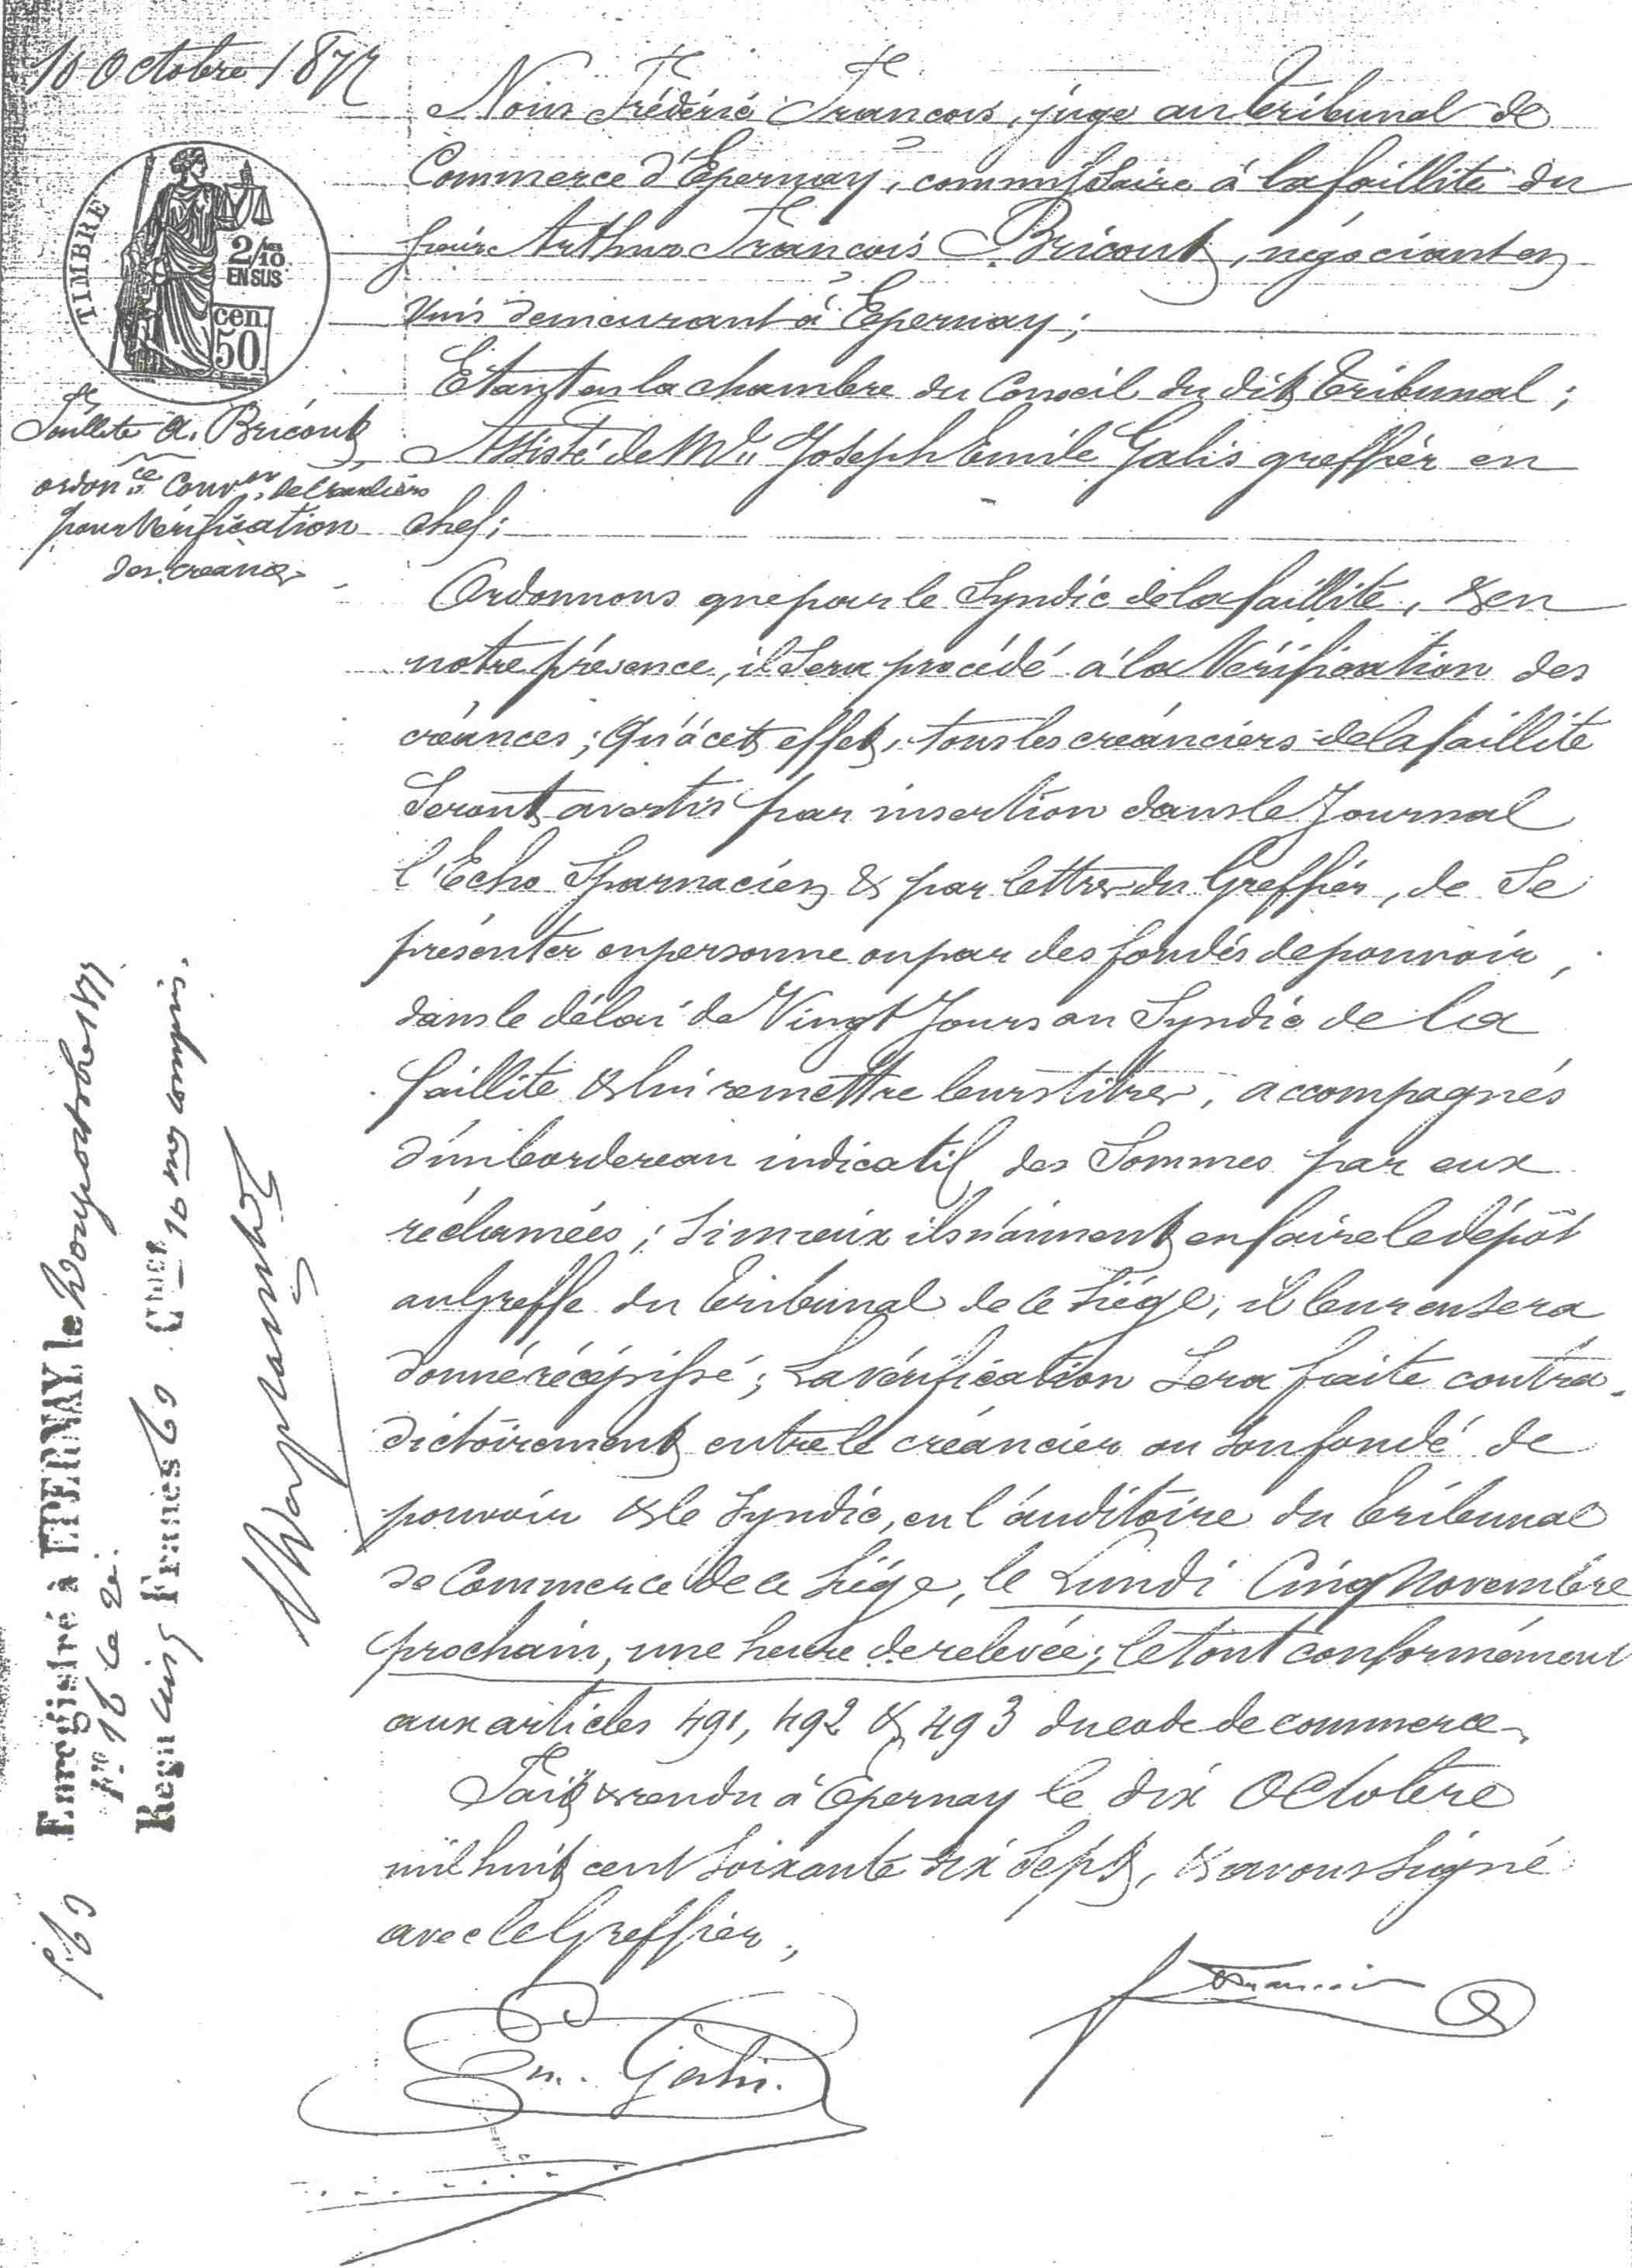 10 Octobre 1877
TIMBRE
2/10
EN SUS
cen.
50
fte A. Bricout
ordonce Convon de Créanciers
pour Vérification
des créances
Nous Frédéric François, juge au tribunal de
Commerce d'Epernay, commissaire à la faillite du
sieur Arthur François Bricout, négociant en
vins demeurant à Epernay;
Etant en la chambre du Conseil du dit tribunal;
Assisté de Me Joseph Emile Galis greffier en
chef;
Ordonnons que par le Syndic de la faillite, & en
notre présence, il sera procédé à la Vérification des
créances; Qu'à cet effet, tous les créanciers de la faillite
Seront avertis par insertion dans le Journal
l'Echo Sparnacien & par lettres du Greffier, de Se
présenter en personne ou par des fondés de pouvoir,
dans le délai de Vingt Jours au Syndic de la
faillite & lui remettre leurs titres, accompagnés
d'un bordereau indicatif des Sommes par eux
réclamées; si mieux ils n'aiment en faire le dépôt
au Greffe du tribunal de ce Siége, il leur en sera
donné récépissé; La vérification Sera faite contra-
dictoirement entre le créancier ou son fondé de
pouvoir & le Syndic, en l'auditoire du tribunal
de Commerce de ce Siége, le Lundi Cinq Novembre
prochain, une heure de relevée; le tout conformément
aux articles 491, 492 & 493 du code de commerce.
Fait & rendu à Epernay le dix Octobre
mil huit cent soixante dix sept, & avons signé
avec le Greffier.
Em. Galis.
François
Enregistré à EPERNAY, le onze octobre 1877
Fo 16 Ce 2.
Reçu cinq Francs 63 Cmes 10mes compris.